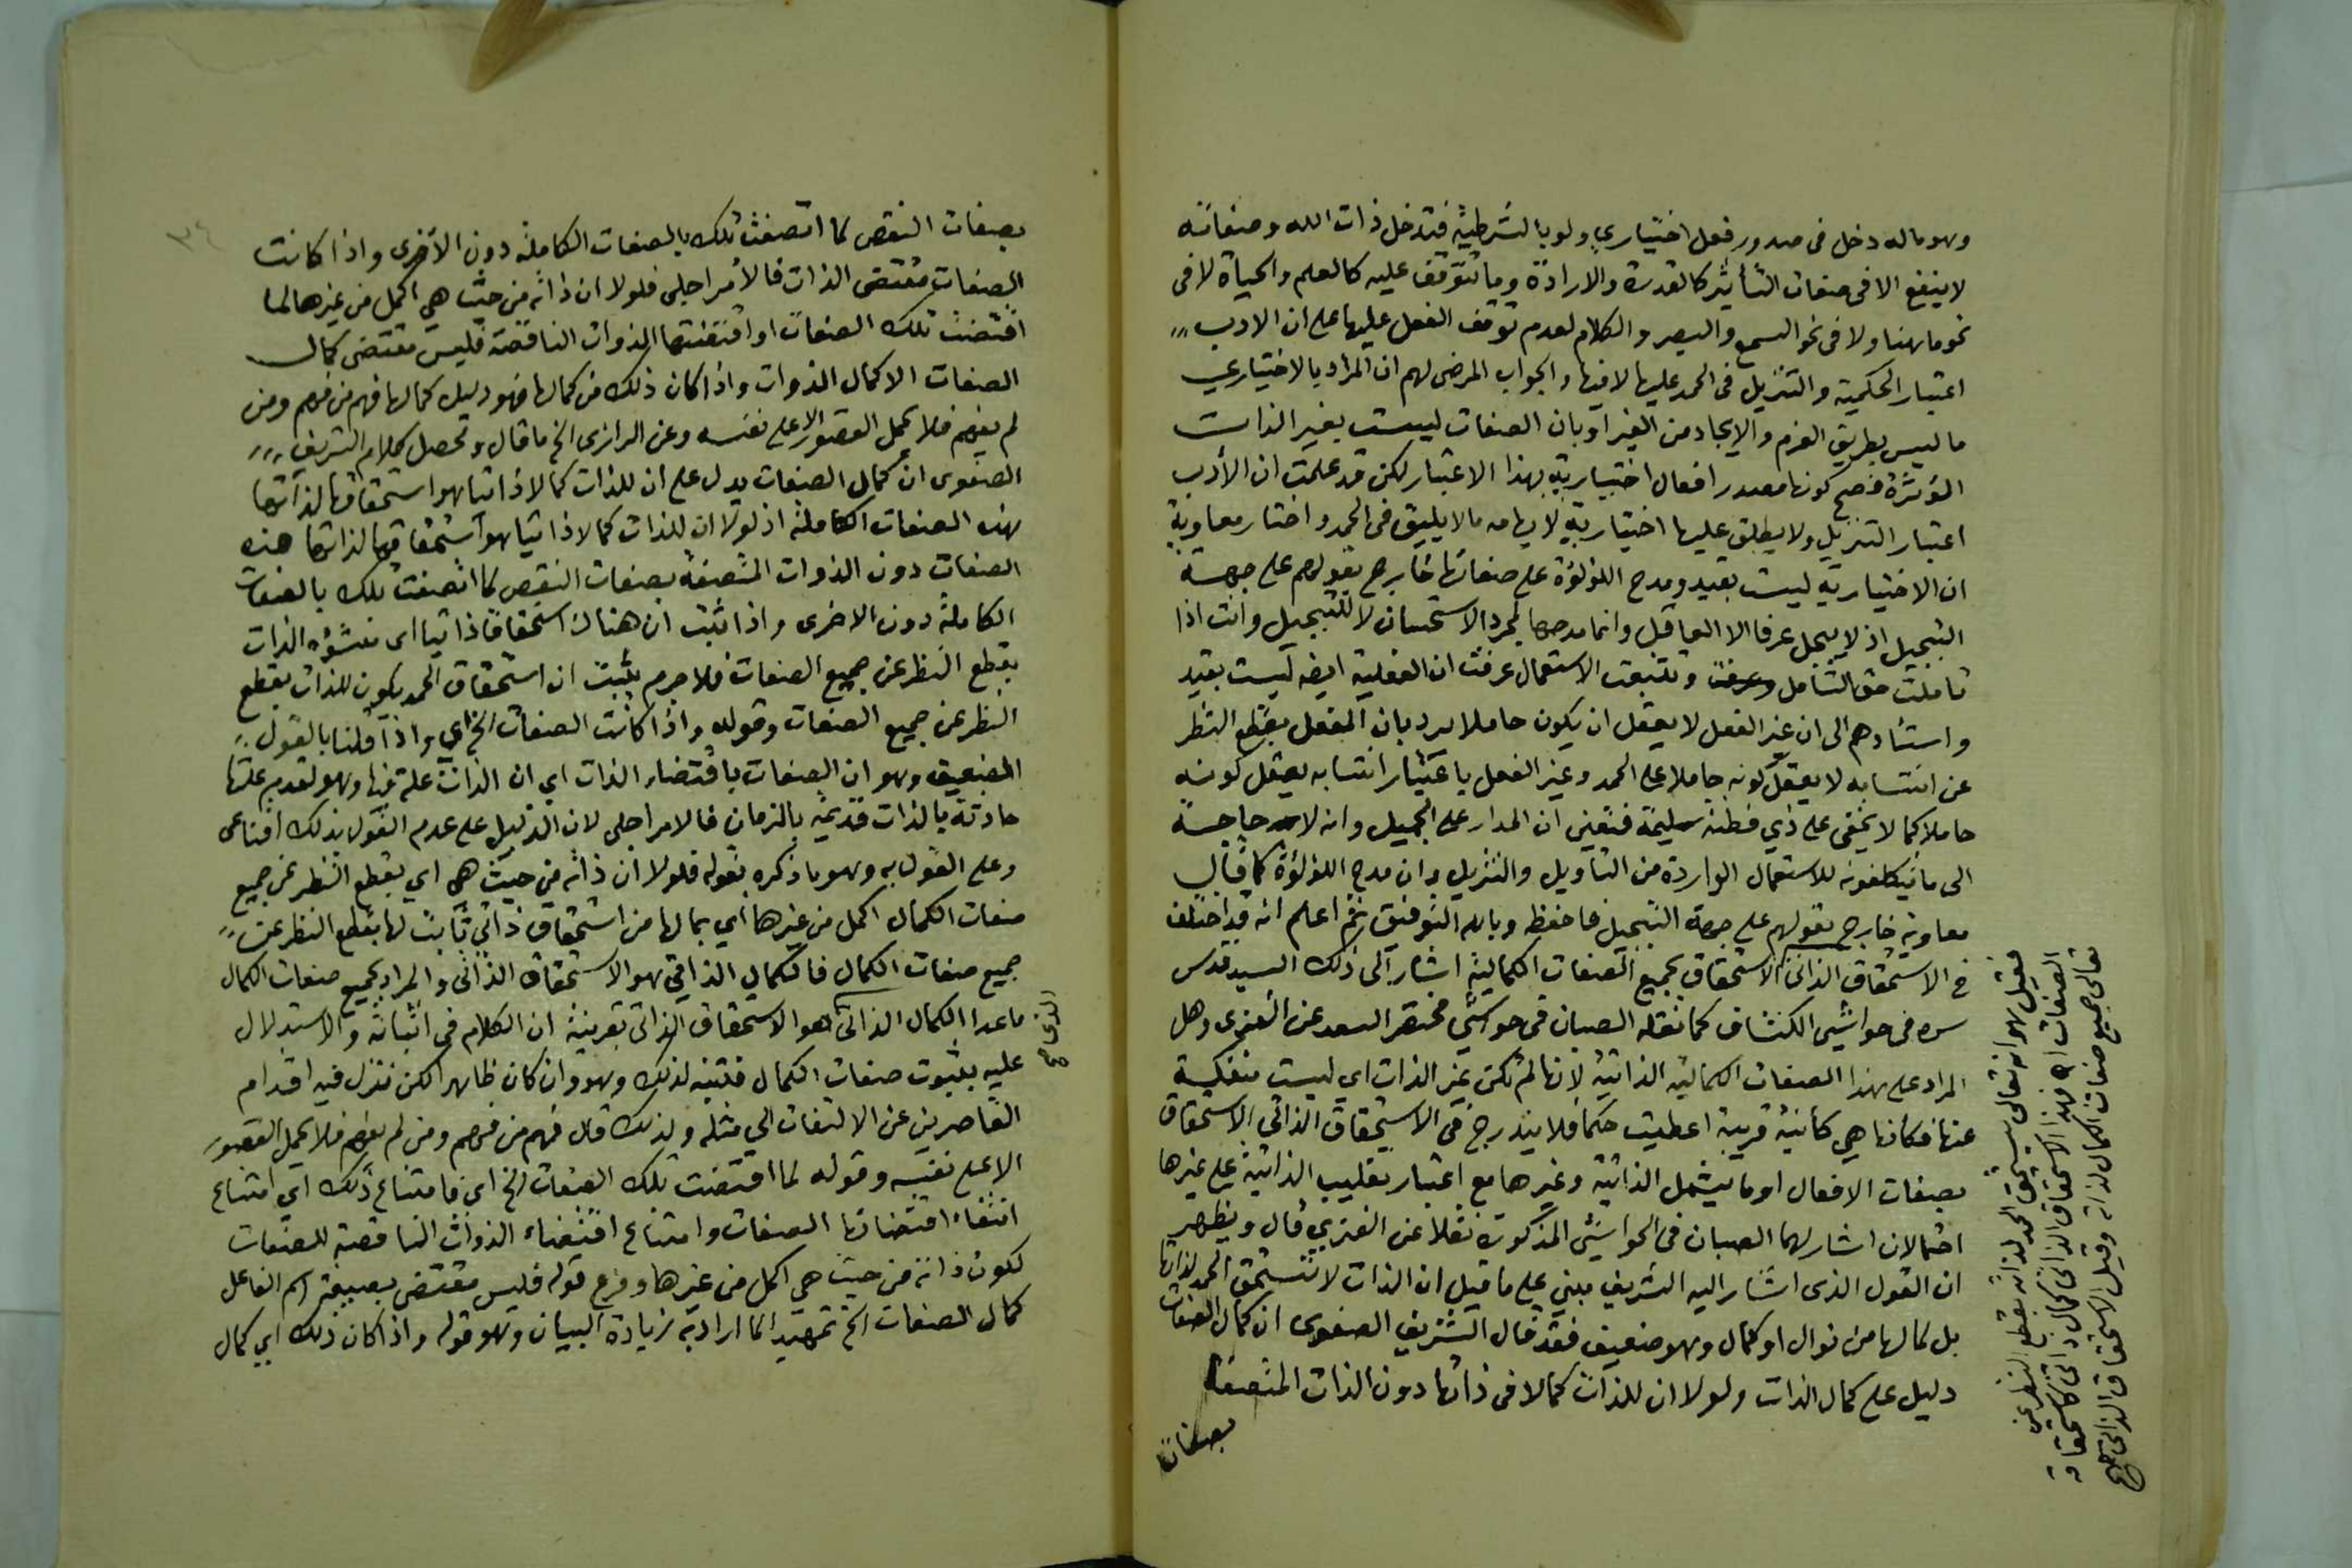 وهو ماله دخل فى صدور فعل اختيارى ولو بالشرطية فتدخل ذات الله وصفاته
لا ينفع الا فى صفات التأثير كالقدرة والارادة وما تتوقف عليه كالعلم والحياة لا فى
نحو ما هنا ولا فى نحو السمع والبصر والكلام لعدم توقف الفعل عليها على ان الادب
اعتبار الحكمية والتنزيل فى الحمد عليها لا فيها والجواب المرضى لهم ان المراد بالاختيارى
ما ليس بطريق العزم والايجاد من الغير او بان الصفات ليست بغير الذات
المؤثرة فصح كونها مصدر افعال اختيارية بهذا الاعتبار لكن قد علمت ان الأدب
اعتبار التنزيل ولا يطلق عليها اختيارية لايهامه ما لا يليق فى الحمد واختار معاوية
ان الاختيارية ليست بقيد ومدح اللؤلؤة على صفائها خارج بقولهم على جهة
التبجيل اذ لا يبجل عرفا الا العاقل وانما مدحها لمجرد الاستحسان لا للتبجيل وانت اذا
تاملت حق التامل وتتبعت الاستعمال عرفت ان الفعلية ايضه ليست بقيد
واستنادهم الى ان غير الفعل لا يعقل ان يكون حاملا يرد بان الفعل بقطع النظر
عن انتسابه لا يعقل كونه حاملا على الحمد وغير الفعل باعتبار انتسابه يعقل كونه
حاملا كما لا يخفى على ذي فطنة سليمة فتعين ان المدار على الجميل وانه لا حاجة
الى ما يتكلفونه للاستعمال الواردة من التأويل والتنزيل وان مدح اللؤلؤة كما قال
معاوية خارج بقولهم على جهة التبجيل فاحفظه وبالله التوفيق ثم اعلم انه قد اختلف
فى الاستحقاق الذاتى الاستحقاق بجميع الصفات الكمالية اشار الى ذلك السيد قدس
سره فى حواشى الكشاف كما نقله الصبان فى حواشى مختصر السعد عن الغنرى وهل
المراد على هذا الصفات الكمالية الذاتية لانها لم تكن غير الذات اي ليست منفكة
عنها فكانها هي كأنية قريبة اعطيت حكما فلا يندرج فى الاستحقاق الذاتى الاستحقاق
بصفات الافعال او ما يشمل الذاتية وغيرها مع اعتبار تغليب الذاتية على غيرها
احتمالان اشار لهما الصبان فى الحواشى المذكورة نقلا عن الغنرى قال ويظهر
ان القول الذى اشار اليه الشريف مبني على ما قيل ان الذات لا تستحق الحمد لذاتها
بل لما لها من نوال او كمال وهو ضعيف فقد قال الشريف الصفوى ان كمال الصفات
دليل على كمال الذات ولولا ان للذات كمالا فى ذاتها دون الذات المتصفة
بصفات
فقيل هو انه تعالى يستحق الحمد لذاته بقطع النظر عن
الصفات فهذا الاستحقاق الذاتى كمال ذاتى كاستحقاقه
تعالى جميع صفات الكمال لذاته وقيل الاستحقاق الذاتى صح
بصفات النقص كما اتصفت تلك بالصفات الكاملة دون الأخرى واذا كانت
الصفات مقتضى الذات فالأمر اجلى فلولا ان ذاته من حيث هي اكمل من غيرها لما
اقتضت تلك الصفات او اقتضتها الذوات الناقصة فليس مقتضى كمال
الصفات الا كمال الذوات واذا كان ذلك من كمالها فهو دليل كمالها فهم من فهم ومن
لم يفهم فلا يحمل القصور الا على نفسه وعن الرازى الخ ما قال وتحصل كلام الشريف
الصفوى ان كمال الصفات يدل على ان للذات كمالا ذاتيا هو استحقاقها لذاتها
هذه الصفات الكاملة اذ لولا ان للذات كمالا ذاتيا هو استحقاقها لذاتها هذه
الصفات دون الذوات المتصفة بصفات النقص لما اتصفت تلك بالصفات
الكاملة دون الاخرى واذا ثبت ان هناك استحقاقا ذاتيا اى منشؤه الذات
بقطع النظر عن جميع الصفات فلا جرم يثبت ان استحقاق الحمد يكون للذات بقطع
النظر عن جميع الصفات وقوله واذا كانت الصفات الخ اي واذا قلنا بالقول
الضعيف وهو ان الصفات باقتضاء الذات اي ان الذات علة فيها وهو لعدم علتها
حادثة بالذات قديمة بالزمان فالامر اجلى لان الدليل على عدم القول بذلك اقناعى
وعلى القول به وهو ما ذكره بقوله فلولا ان ذاته من حيث هي اي بقطع النظر عن جميع
صفات الكمال اكمل من غيرها أي بما لها من استحقاق ذاتي ثابت لها بقطع النظر عن
جميع صفات الكمال فالكمال الذاتى هو الاستحقاق الذاتى والمراد بجميع صفات الكمال
ما عدا الكمال الذاتى هو الاستحقاق الذاتى بقرينة ان الكلام فى اثباته والاستدلال
عليه بثبوت صفات الكمال فتنبه لذلك وهو وان كان ظاهرا لكن تنزل فيه اقدام
القاصرين عن الالتفات الى مثله ولذلك قال فهم من فهم ومن لم يفهم فلا يحمل القصور
الا على نفسه وقوله لما اقتضت تلك الصفات الخ اى فامتناع ذلك اي امتناع
انتفاء اقتضائها الصفات وامتناع اقتضاء الذوات الناقصة للصفات
لكون ذاته من حيث هي اكمل من غيرها وفرع قوله فليس مقتضى بصيغة اسم الفاعل
كمال الصفات الخ تمهيدا لما اراد به زيادة البيان وهو قوله واذا كان ذلك اي كمال
الذى صح
٣٤